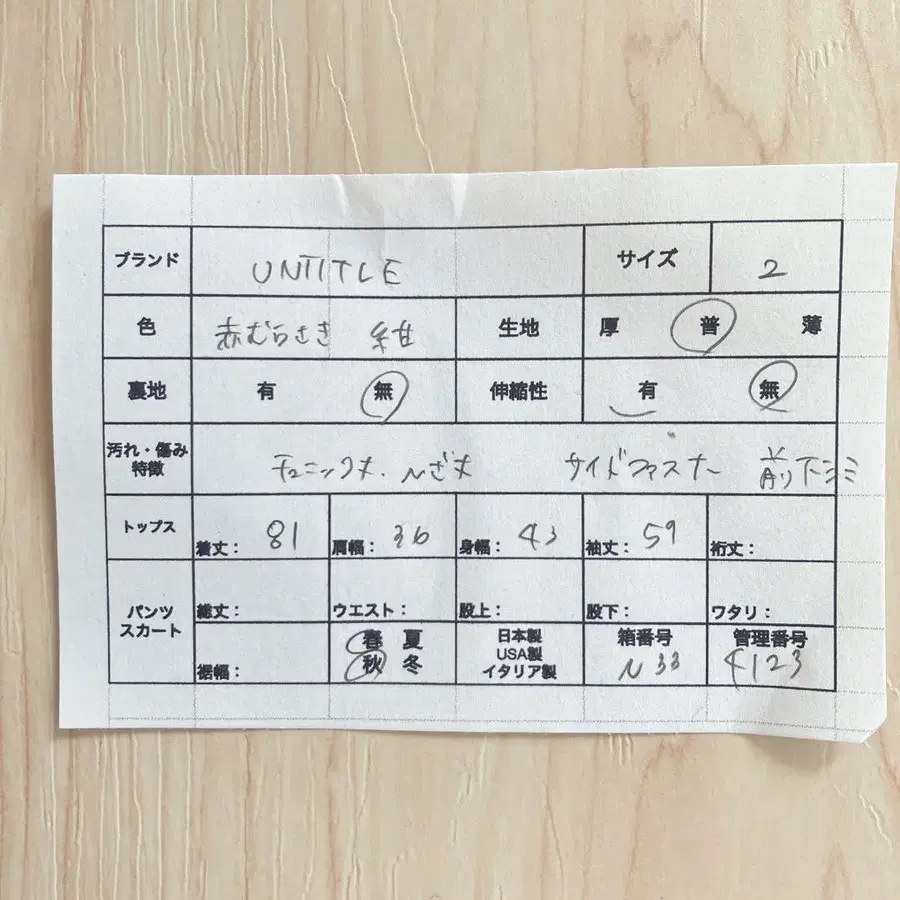 ブランド UNTITLE サイズ 2
色 赤むらさき 紺 生地 厚 普 薄
裏地 有 無 伸縮性 有 無
汚れ・傷み
特徴 チュニック丈、ひざ丈 サイドファスナー 前下シミ
トップス 着丈: 81 肩幅: 36 身幅: 43 袖丈: 59 裄丈:
パンツ
スカート 総丈: ウエスト: 股上: 股下: ワタリ:
裾幅: 春 夏
秋 冬
日本製
USA製
イタリア製
箱番号
N33
管理番号
4123